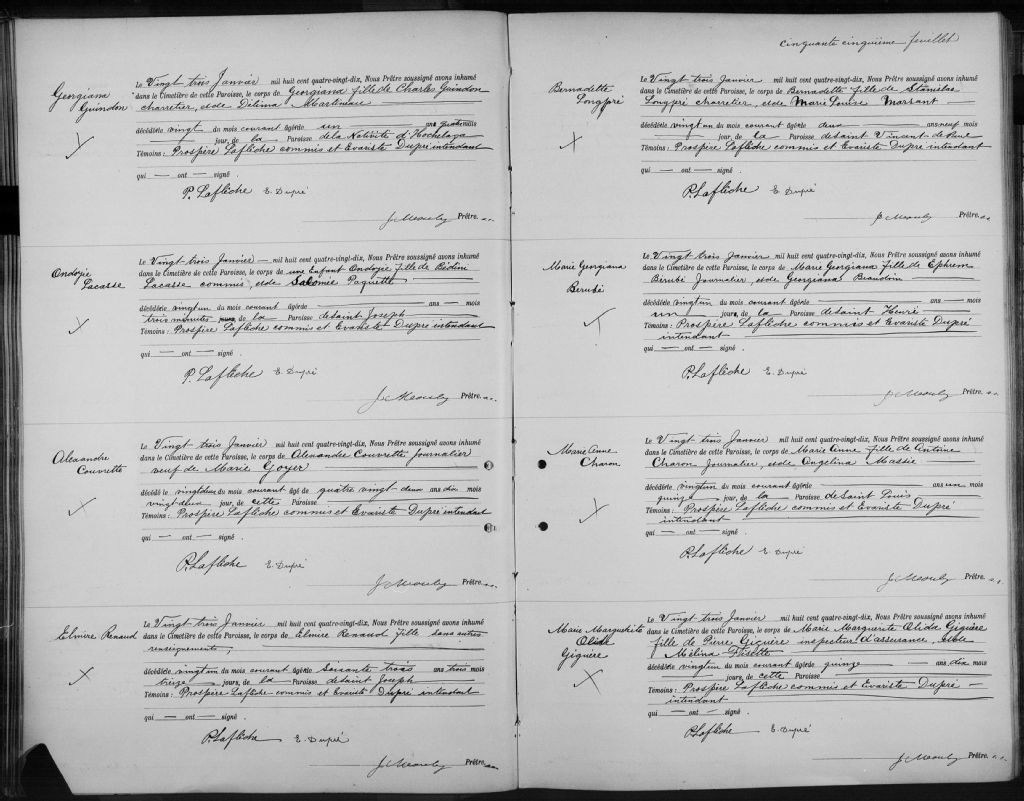 Georgiana
Guindon
Le Vingt trois Janvier mil huit cent quatre-vingt-dix, Nous Prêtre soussigné avons inhumé
dans le Cimetière de cette Paroisse, le corps de Georgiana fille de Charles Guindon
charretier, et de Délima Martineau
décédé le vingt du mois courant âgé de un ans
jour, de la Paroisse de la Nativité d'Hochelaga
Témoins : Prospère Laflèche commis et Evariste Dupré intendant
qui — ont — signé .
P. Laflèche E. Dupré
Prêtre.
Ondoyée
Lacasse
Le Vingt trois Janvier — mil huit cent quatre-vingt-dix, Nous Prêtre soussigné avons inhumé
dans le Cimetière de cette Paroisse, le corps de une Enfant Ondoyée fille de
Lacasse commis, et de Salomée Paquette
décédé le vingt un du mois courant âgé de — ans — mois
trois minutes jours, de la Paroisse de saint Joseph
Témoins : Prospère Laflèche commis et Evariste Dupré intendant
qui — ont — signé .
P. Laflèche E. Dupré
Prêtre.
Alexandre
Couvrette
Le Vingt trois Janvier mil huit cent quatre-vingt-dix, Nous Prêtre soussigné avons inhumé
dans le Cimetière de cette Paroisse, le corps de Alexandre Couvrette Journalier
veuf de Marie Goyer
décédé le vingt deux du mois courant âgé de quatre vingt-deux ans dix mois
vingt-deux jour, de cette Paroisse
Témoins : Prospère Laflèche commis et Evariste Dupré intendant
qui — ont — signé .
P. Laflèche E. Dupré
Prêtre.
Elmire Renaud
Le Vingt trois Janvier mil huit cent quatre-vingt-dix, Nous Prêtre soussigné avons inhumé
dans le Cimetière de cette Paroisse, le corps de Elmire Renaud fille sans autres
renseignements,
décédé le vingt un du mois courant âgé de soixante trois ans trois mois
treize jours, de la Paroisse de saint Joseph
Témoins : Prospère Laflèche commis et Evariste Dupré intendant
qui — ont — signé .
P. Laflèche E. Dupré
Prêtre.
Cinquante cinquième feuillet
Bernadette
Longpré
Le Vingt trois Janvier mil huit cent quatre-vingt-dix, Nous Prêtre soussigné avons inhumé
dans le Cimetière de cette Paroisse, le corps de Bernadette fille de Stanislas
Longpré charretier, et de Marie Louise
décédé le vingt un du mois courant âgé de deux ans neuf mois
jour, de la Paroisse de saint Vincent de Paul
Témoins : Prospère Laflèche commis et Evariste Dupré intendant
qui — ont — signé .
P. Laflèche E. Dupré
Prêtre.
Marie Georgiana
Bérubé
Le Vingt trois Janvier mil huit cent quatre-vingt-dix, Nous Prêtre soussigné avons inhumé
dans le Cimetière de cette Paroisse, le corps de Marie Georgiana fille de Ephrem
Bérubé Journalier, et de Georgiana Beaudoin
décédé le vingt un du mois courant âgé de — ans — mois
un jours, de la Paroisse de saint Henri
Témoins : Prospère Laflèche commis et Evariste Dupré
intendant
qui — ont — signé .
P. Laflèche E. Dupré
Prêtre.
Marie Anne
Charon
Le Vingt trois Janvier mil huit cent quatre-vingt-dix, Nous Prêtre soussigné avons inhumé
dans le Cimetière de cette Paroisse, le corps de Marie Anne fille de Antoine
Charon Journalier, et de Angelina Massie
décédé le vingt un du mois courant âgé de — ans un mois
quinze jour, de la Paroisse de Saint Louis
Témoins : Prospère Laflèche commis et Evariste Dupré
intendant
qui — ont — signé .
P. Laflèche E. Dupré
Prêtre.
Marie Marguerite
Olida
Giguère
Le Vingt trois Janvier mil huit cent quatre-vingt-dix, Nous Prêtre soussigné avons inhumé
dans le Cimetière de cette Paroisse, le corps de Marie Marguerite Olida Giguère
fille de Pierre Giguère inspecteur d'assurance, et de
Mélina
décédé le vingt un du mois courant âgé de quinze — ans dix mois
jours, de cette Paroisse
Témoins : Prospère Laflèche commis et Evariste Dupré —
intendant
qui — ont — signé .
P. Laflèche E. Dupré
Prêtre.